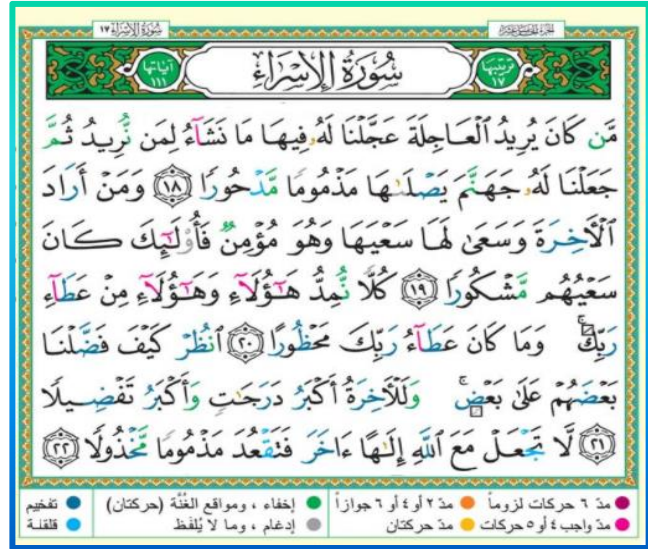 سُورَةُ الإِسۡرَاءِ ١٧
الجزء الخامس عشر
ترتيبها ١٧
سُورَةُ الإِسْرَاءِ
آياتها ١١١
مَّن كَانَ يُرِيدُ ٱلۡعَاجِلَةَ عَجَّلۡنَا لَهُۥ فِيهَا مَا نَشَآءُ لِمَن نُّرِيدُ ثُمَّ
جَعَلۡنَا لَهُۥ جَهَنَّمَ يَصۡلَىٰهَا مَذۡمُومٗا مَّدۡحُورٗا ١٨ وَمَنۡ أَرَادَ
ٱلۡأٓخِرَةَ وَسَعَىٰ لَهَا سَعۡيَهَا وَهُوَ مُؤۡمِنٞ فَأُوْلَٰٓئِكَ كَانَ
سَعۡيُهُم مَّشۡكُورٗا ١٩ كُلّٗا نُّمِدُّ هَٰٓؤُلَآءِ وَهَٰٓؤُلَآءِ مِنۡ عَطَآءِ
رَبِّكَۚ وَمَا كَانَ عَطَآءُ رَبِّكَ مَحۡظُورًا ٢٠ ٱنظُرۡ كَيۡفَ فَضَّلۡنَا
بَعۡضَهُمۡ عَلَىٰ بَعۡضٖۚ وَلَلۡأٓخِرَةُ أَكۡبَرُ دَرَجَٰتٖ وَأَكۡبَرُ تَفۡضِيلٗا
٢١ لَّا تَجۡعَلۡ مَعَ ٱللَّهِ إِلَٰهًا ءَاخَرَ فَتَقۡعُدَ مَذۡمُومٗا مَّخۡذُولٗا ٢٢
مدّ ٦ حركات لزوماً مدّ ٢ أو ٤ أو ٦ جوازاً إخفاء ، ومواقع الغُنَّة (حركتان) تفخيم
مدّ واجب ٤ أو ٥ حركات مدّ حركتان إدغام ، وما لا يُلفَظ قلقلة